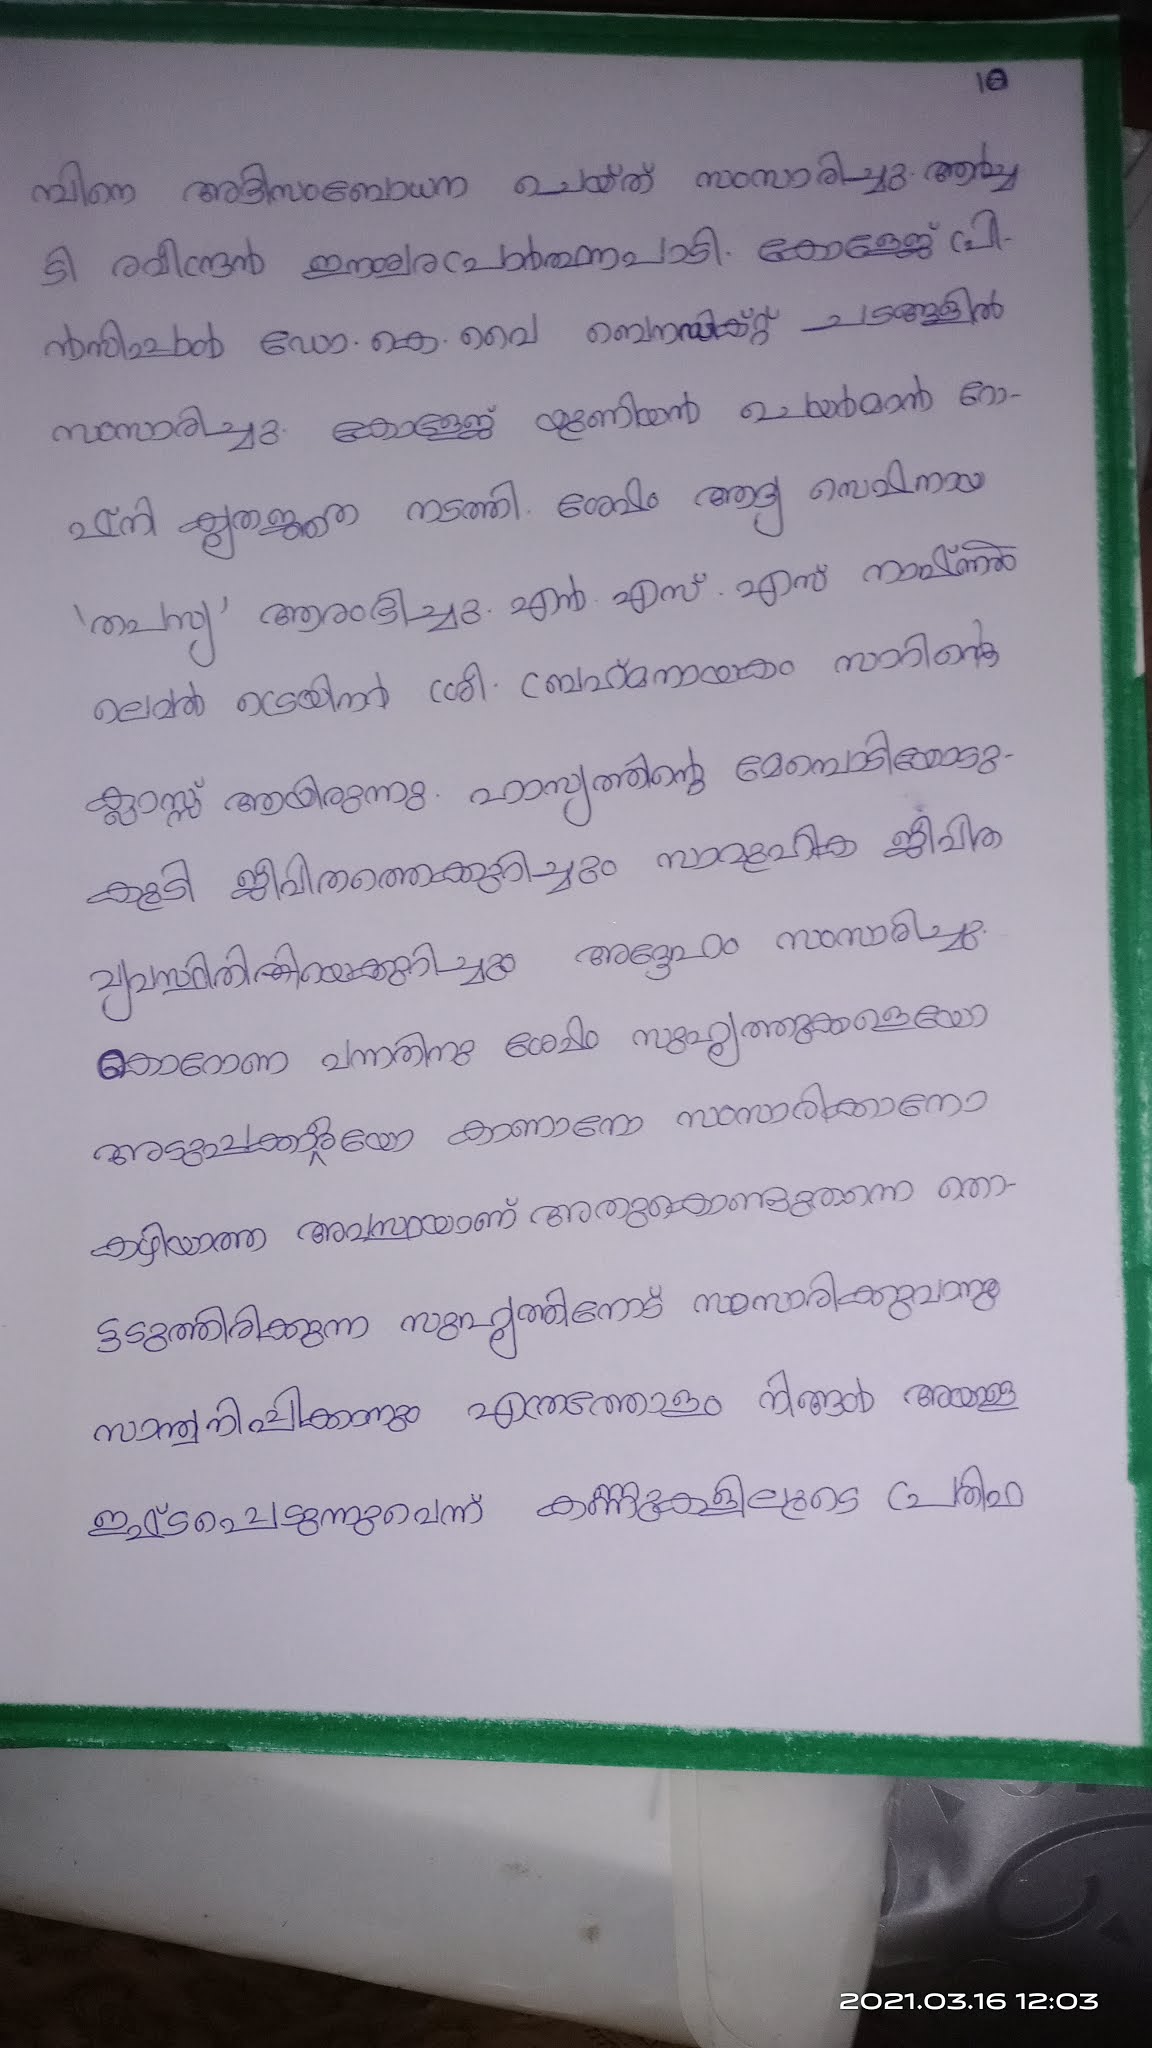 10
മ്പിനെ അഭിസംബോധന ചെയ്ത് സംസാരിച്ചു. ആർച്ച
ടി രവീന്ദ്രൻ ഈശ്വരപ്രാർത്ഥനപാടി. കോളേജ് പ്രി-
ൻസിപ്പാൾ ഡോ. കെ. വൈ ബെനഡിക്റ്റ് ചടങ്ങിൽ
സംസാരിച്ചു. കോളേജ് യൂണിയൻ ചെയർമാൻ റോ-
ഷ്നി കൃതജ്ഞത നടത്തി. ശേഷം ആദ്യ സെമിനാറായ
'തപസ്യ' ആരംഭിച്ചു. എൻ. എസ്. എസ് നാഷ്ണൽ
ലെവൽ ട്രെയിനർ ശ്രീ. ബ്രഹ്മനായകം സാറിന്റെ
ക്ലാസ്സ് ആയിരുന്നു. ഹാസ്യത്തിന്റെ മേമ്പൊടിയോടു-
കൂടി ജീവിതത്തെക്കുറിച്ചും സാമൂഹിക ജീവിത
വ്യവസ്ഥിതിയെക്കുറിച്ചും അദ്ദേഹം സംസാരിച്ചു.
കൊറോണ വന്നതിനു ശേഷം സുഹൃത്തുക്കളെയോ
അടുപ്പക്കാരെയോ കാണാനോ സംസാരിക്കാനോ
കഴിയാത്ത അവസ്ഥയാണ് അതുകൊണ്ടുതന്നെ തൊ-
ട്ടടുത്തിരിക്കുന്ന സുഹൃത്തിനോട് സംസാരിക്കുവാനും
സാന്ത്വനിപ്പിക്കാനും എന്തത്തോളം നിങ്ങൾ അയാളെ
ഇഷ്ടപ്പെടുന്നുവെന്ന് കണ്ണുകളിലൂടെ പ്രതിഫ
2021.03.16 12:03